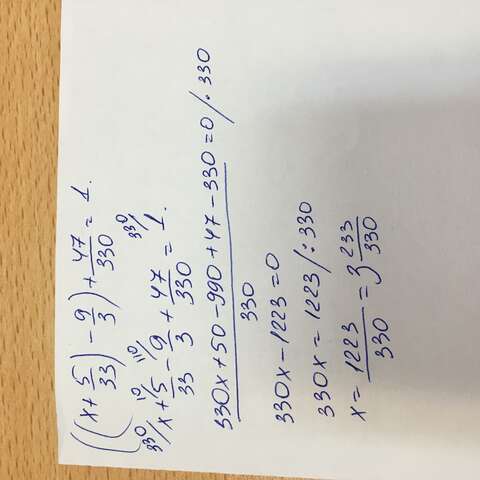 ((x + 5/33) - 9/3) + 47/330 = 1.
330/ x + 10/ 5/33 - 110/ 9/3 + 47/330 = 330/ 1.
(330x + 50 - 990 + 47 - 330)/330 = 0 / · 330
330x - 1223 = 0
330x = 1223 / : 330
x = 1223/330 = 3 233/330